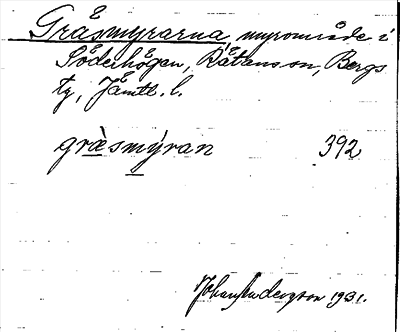 Gråsmyrarna, myrområde i
Söderhögen, Rätans sn, Bergs
tg, Jämtl. l.
græ̀smýran 392
Johan Andersson 1931.